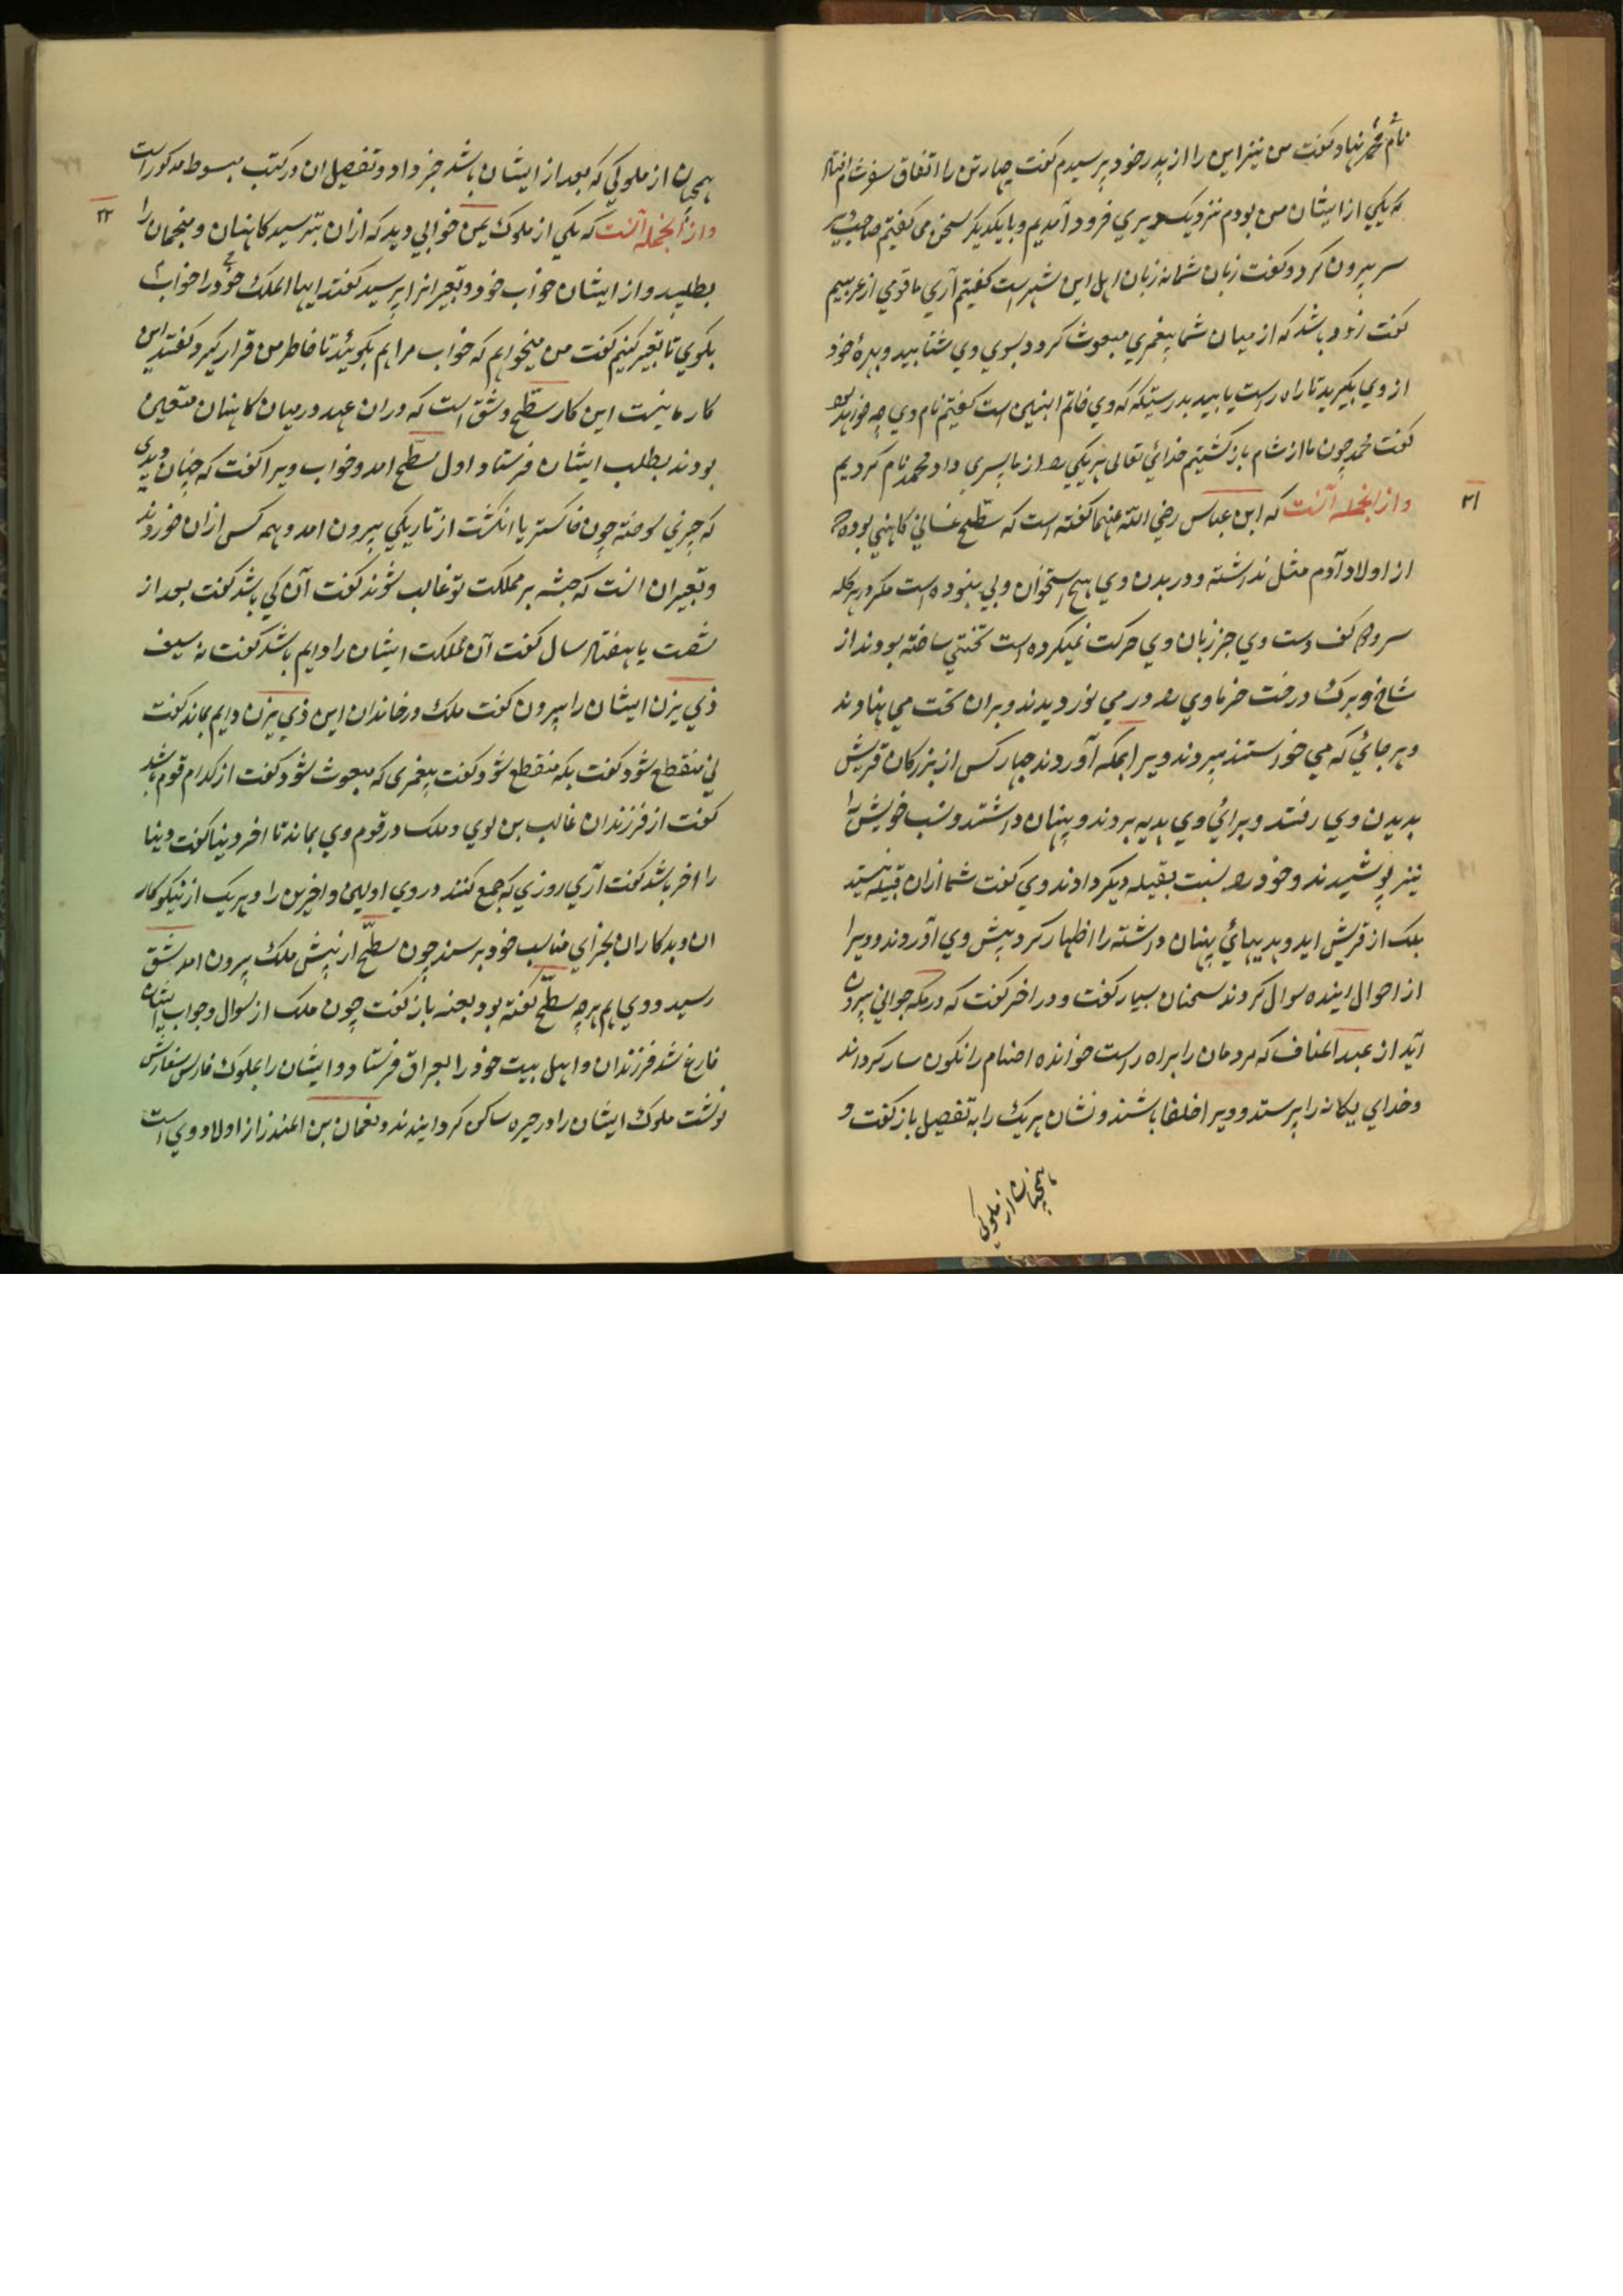 نام محمد نهاد و گفت من نیز این را از پدر خود پرسیدم گفت چهار تن را اتفاق سفر شام افتاد
که یکی از ایشان من بودم نزدیک دیری فرود آمدیم و با یکدیگر سخن می گفتیم صاحب دیر
سر بیرون کرد و گفت زبان شما نه زبان اهل این شهر است گفتیم آری ما قومی از عربیم
گفت زود باشد که از میان شما پیغمبری مبعوث گردد بسوی وی شتابید و بهرهٔ خود
از وی بگیرید تا راه راست یابید بدرستیکه که وی خاتم النبیین است گفتیم نام وی چه خواهد بود
گفت محمد چون ما از شام باز گشتیم خدائی تعالی هر یکی را از ما پسری داد محمد نام کردیم
۲۱
و از انجمله آنست که ابن عباس رضی الله عنهما گفته است که سطیح غسانی کاهنی بوده که
از اولاد آدم مثل نداشته و در بدن وی هیچ استخوان و پی نبوده است مگر در کله
سر و کف دست وی جز زبان وی حرکت نمیکرده است تختی ساخته بودند از
شاخ و برگ درخت خرما وی را در می نوردیدند و بران تخت می نهادند
و هر جائی که می خواستند میبردند ویرا بمکه آوردند چهار کس از بزرگان قریش
بدیدن وی رفتند و برائی وی هدیه بردند و پنهان داشتند و نسب خویش را
نیز پوشیدند و خود را نسبت بقبیله دیگر دادند وی گفت شما ازان قبیله نیستید
بلک از قریش اید و هدیهائی پنهان داشته را اظهار کرد پیش وی آوردند و ویرا
از احوال اینده سوال کردند سخنان بسیار گفت و در اخر گفت که در مکه جوانی بیرون
آید از عبد المناف که مردمان را براه راست خوانده اصنام را نگون سار گرداند
و خدای یگانه را پرستد و ویرا خلفا باشند و نشان هر یک را به تفصیل باز گفت و
همچنان از ملوکی
همچنان از ملوکی که بعد از ایشان باشد خبر داد و تفصیل ان در کتب مبسوط مذکور است
۲۲
و از انجمله آنست که یکی از ملوک یمن خوابی دید که ازان بترسید کاهنان و منجمان را
بطلبید و از ایشان خواب خود و تعبیر انرا پرسید گفتند ایها الملک خود را خواب
بگوی تا تعبیر کنیم گفت من میخواهم که خواب مرا هم بگوئید تا خاطر من قرار گیرد گفتند این
کار ما نیست این کار سطیح و شق است که دران عهد در میان کاهنان متعین
بودند بطلب ایشان فرستاد اول سطیح امد و خواب ویرا گفت که چنان دیدی
که چیزی سوخته چون خاکستر یا انگشت از تاریکی بیرون امد و همه کس ازان خوردند
و تعبیر ان انست که حبشه بر مملکت تو غالب شوند گفت آن کی باشد گفت بعد از
شصت یا هفتاد سال گفت آن مملکت ایشان را دایم باشد گفت نه سیف
ذی یزن ایشان را بیرون گفت ملک در خاندان این ذی یزن دایم بماند گفت
نی منقطع شود گفت بکه منقطع شود گفت پیغمبری که مبعوث شود گفت از کدام قوم باشد
گفت از فرزندان غالب بن لوی و ملک در قوم وی بماند تا اخر دنیا گفت دنیا
را اخر باشد گفت آری روزی که جمع کنند در وی اولین و اخرین را و هر یک از نیکوکار
ان و بدکاران بجزای مناسب خود برسند چون سطیح از پیش ملک بیرون امد شق
رسید و وی هم هر چه سطیح گفته بود بعینه باز گفت چون ملک از سوال و جواب ایشان
فارغ شد فرزندان و اهل بیت خود را بعراق فرستاد و ایشان را بملوک فارس سفارش
نوشت ملوک ایشان را در حیره ساکن گردانیدند و نعمان بن المنذر از اولاد وی است